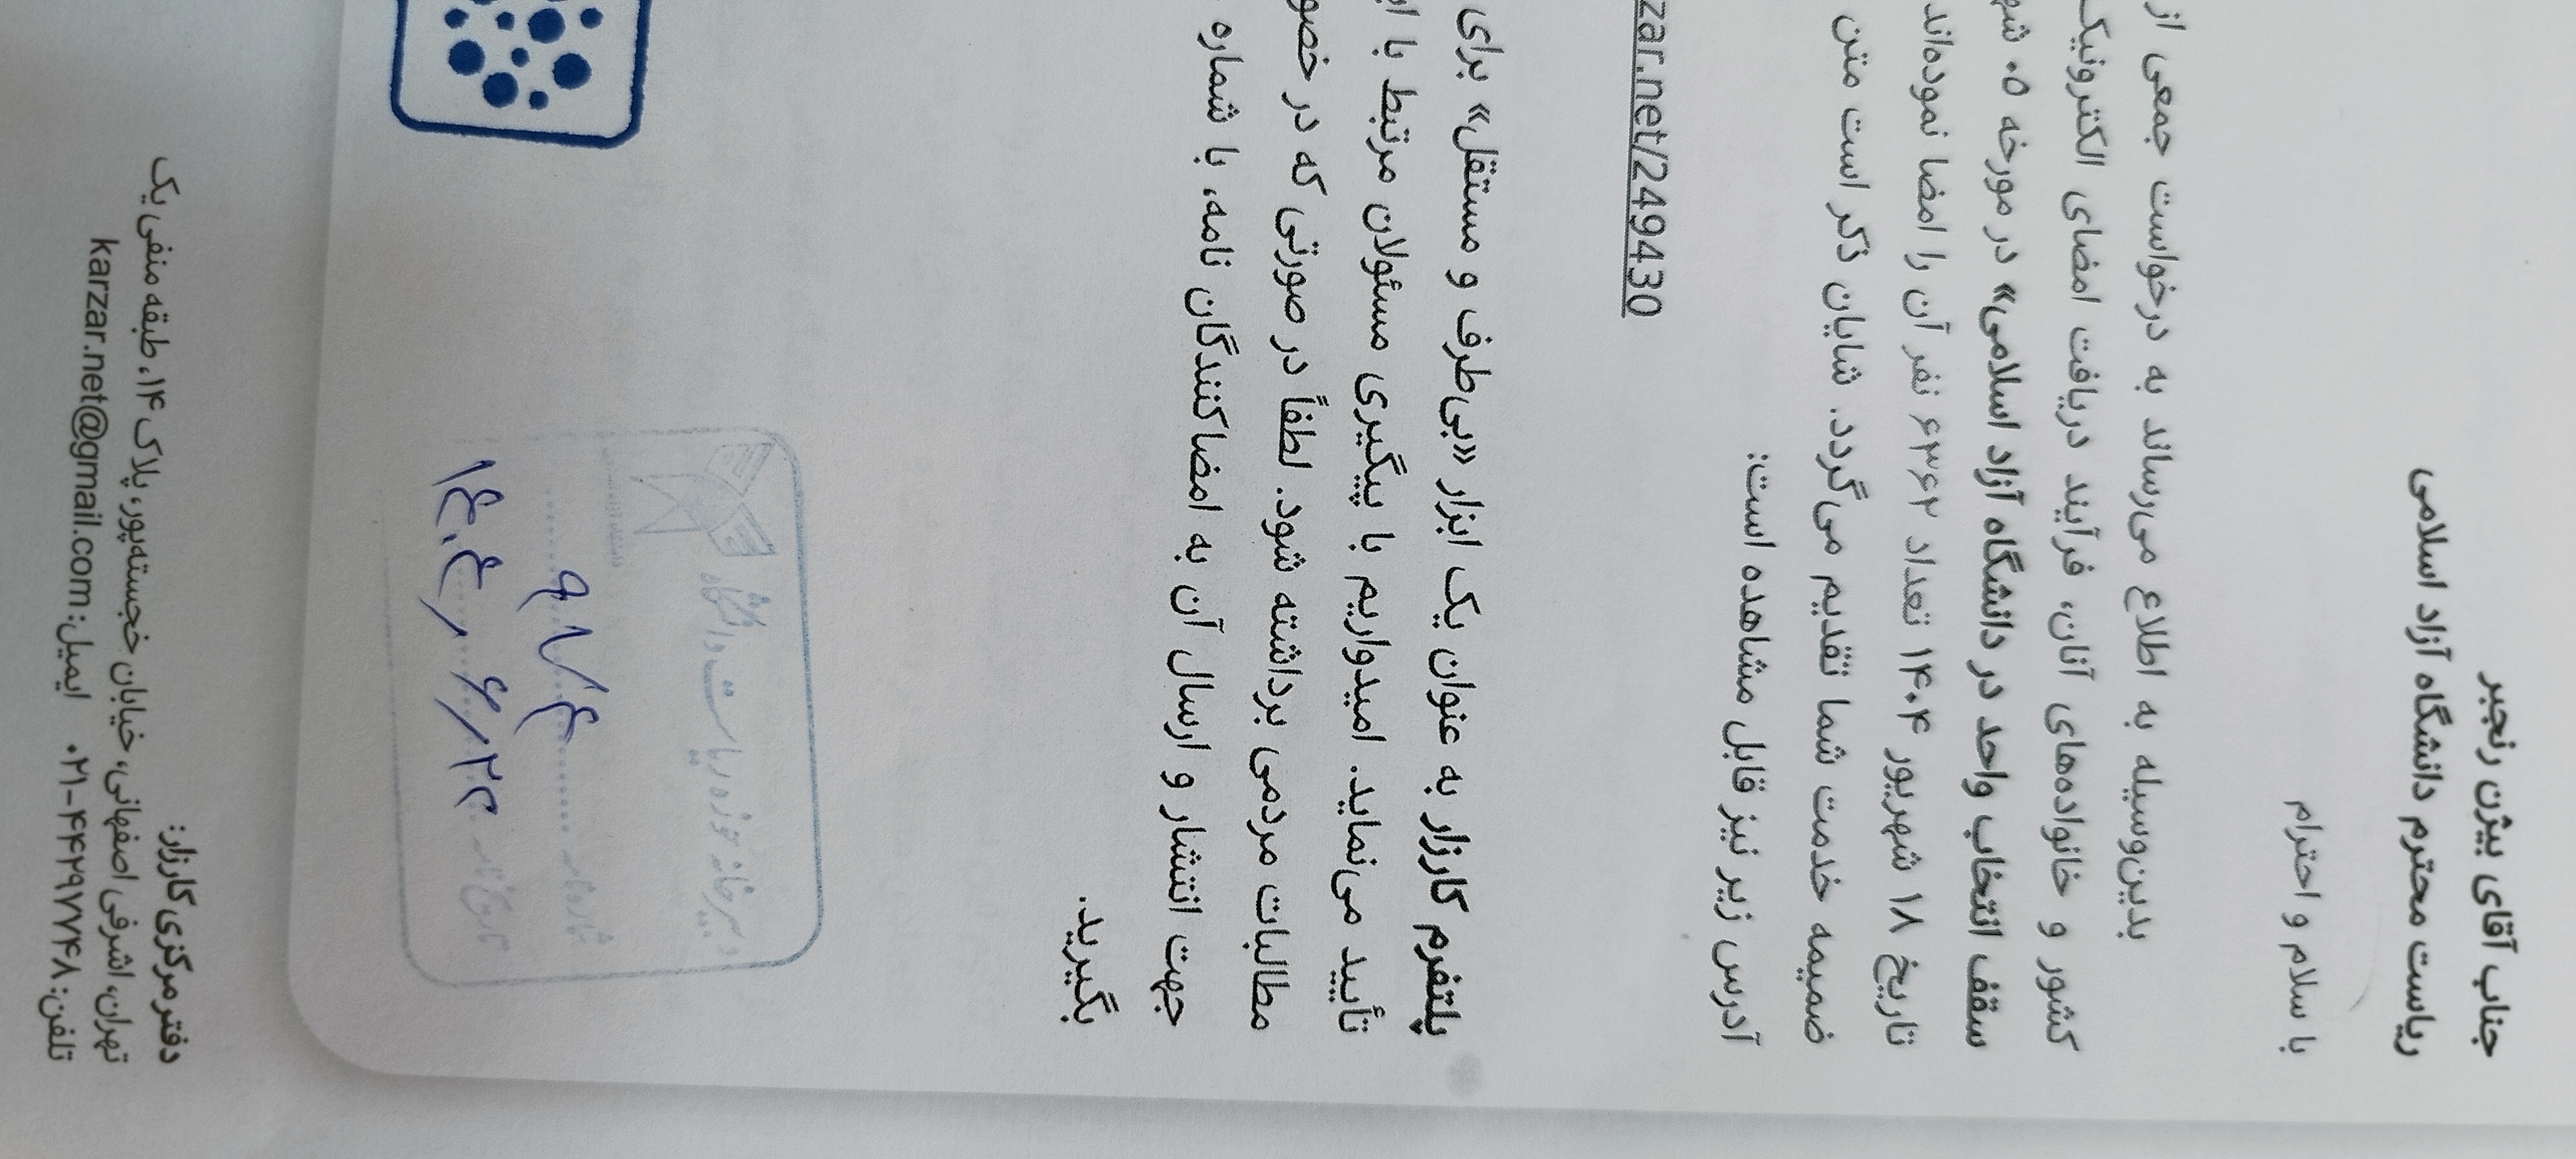 جناب آقای بیژن رنجبر
ریاست محترم دانشگاه آزاد اسلامی
با سلام و احترام
بدین‌وسیله به اطلاع می‌رساند به درخواست جمعی از
کشور و خانواده‌های آنان، فرآیند دریافت امضای الکترونیک
سقف انتخاب واحد در دانشگاه آزاد اسلامی» در مورخه ۰۵
تاریخ ۱۸ شهریور ۱۴۰۴ تعداد ۶۳۶۲ نفر آن را امضا نموده‌اند
ضمیمه خدمت شما تقدیم می‌گردد. شایان ذکر است متن
آدرس زیر نیز قابل مشاهده است:
zar.net/249430
پلتفرم کارزار به عنوان یک ابزار «بی‌طرف و مستقل» برای
تأیید می‌نماید. امیدواریم با پیگیری مسئولان مرتبط با
مطالبات مردمی برداشته شود. لطفاً در صورتی که در
جهت انتشار و ارسال آن به امضاکنندگان نامه، با شماره
بگیرید.
دبیرخانه حوزه ریاست دانشگاه
شماره نامه
تاریخ نامه
دفتر مرکزی کارزار:
تهران، اشرفی اصفهانی، خیابان خجسته‌پور، پلاک ۱۴، طبقه منفی یک
تلفن: ۰۲۱-۴۴۲۹۷۷۴۸ ایمیل: karzar.net@gmail.com